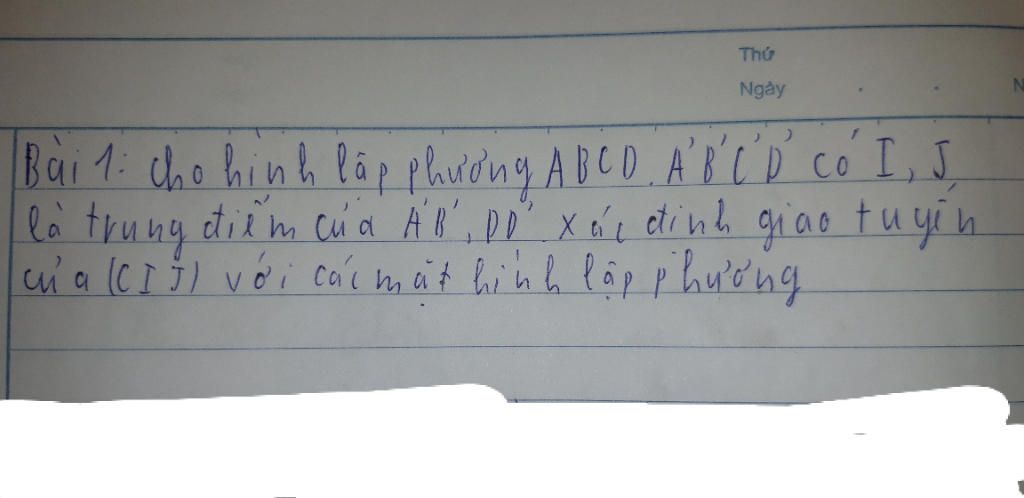 Thứ
Ngày
N
Bài 1: Cho hình lập phương ABCD.A'B'C'D' có I, J
là trung điểm của A'B', DD'. Xác định giao tuyến
của (CIJ) với các mặt hình lập phương